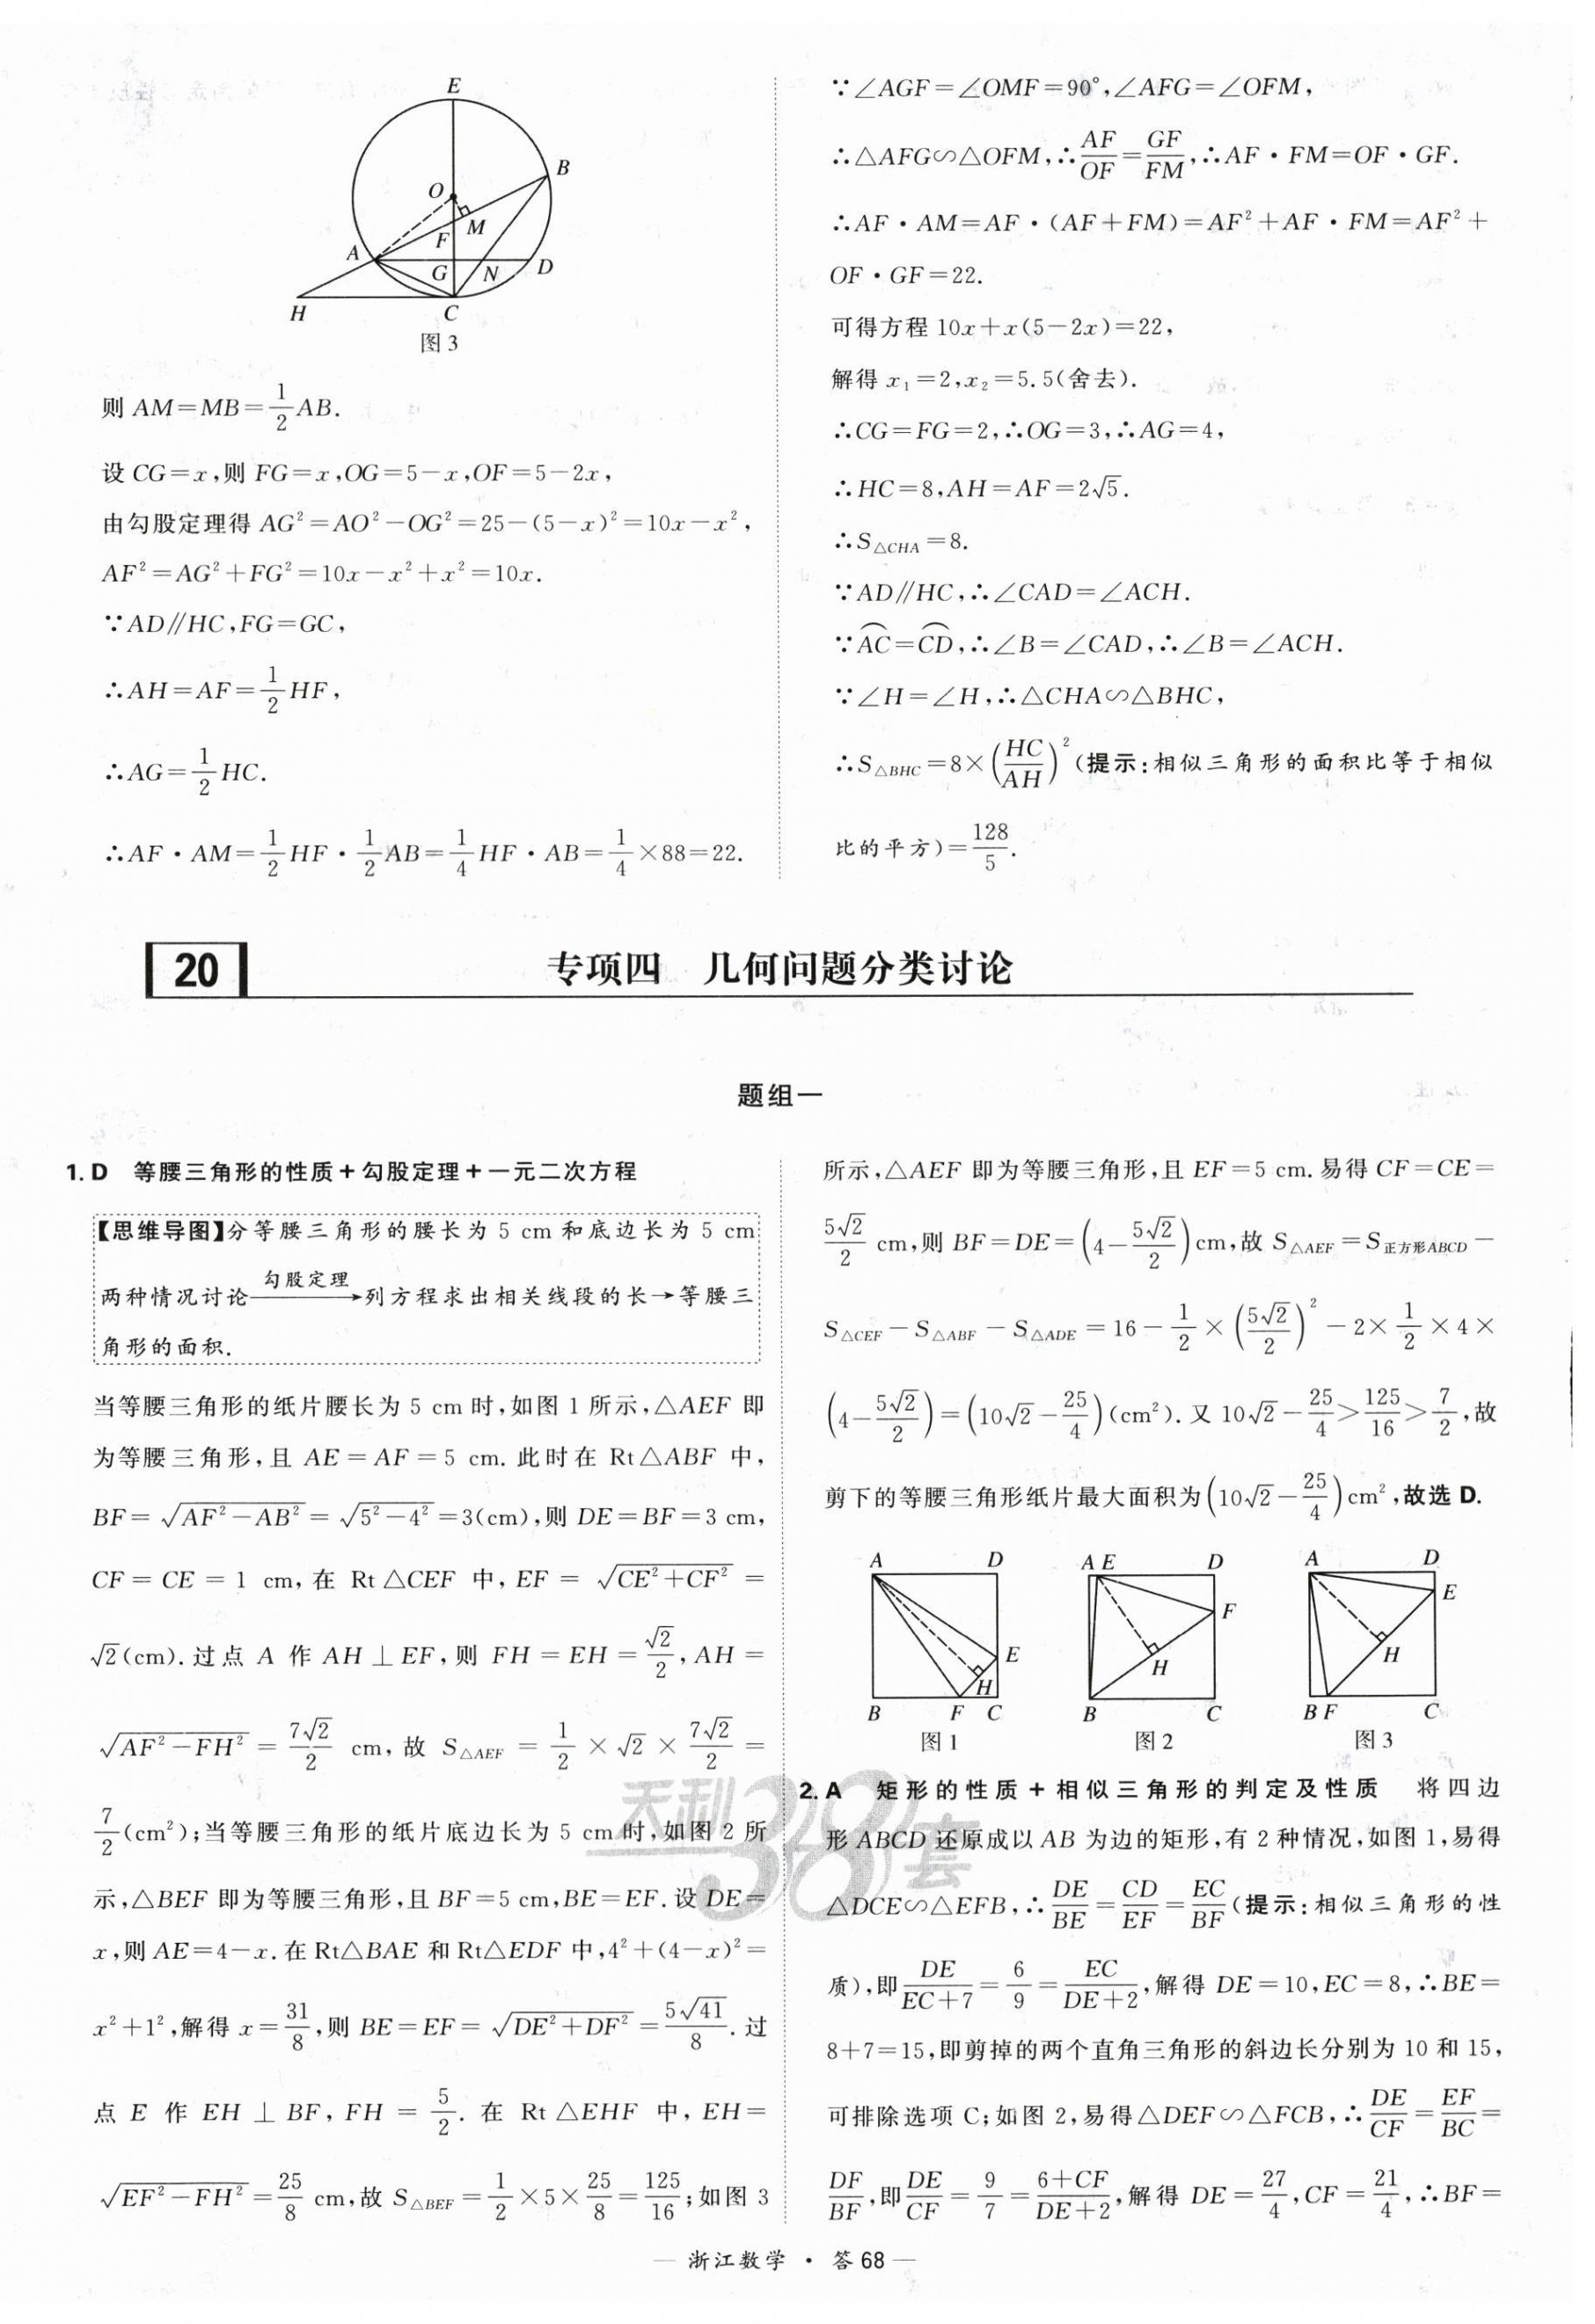 E
B
O
M
F
A
G
N
D
H
C
图3
则 AM=MB=1/2 AB.
设 CG=x,则 FG=x,OG=5-x,OF=5-2x,
由勾股定理得 AG²=AO²-OG²=25-(5-x)²=10x-x²,
AF²=AG²+FG²=10x-x²+x²=10x.
∵AD∥HC,FG=GC,
∴AH=AF=1/2 HF,
∴AG=1/2 HC.
∴AF·AM=1/2 HF·1/2 AB=1/4 HF·AB=1/4×88=22.
∵∠AGF=∠OMF=90°,∠AFG=∠OFM,
∴△AFG∽△OFM,∴AF/OF=GF/FM,∴AF·FM=OF·GF.
∴AF·AM=AF·(AF+FM)=AF²+AF·FM=AF²+
OF·GF=22.
可得方程 10x+x(5-2x)=22,
解得 x₁=2,x₂=5.5(舍去).
∴CG=FG=2,∴OG=3,∴AG=4,
∴HC=8,AH=AF=2√5.
∴S△CHA=8.
∵AD∥HC,∴∠CAD=∠ACH.
∵⌒AC=⌒CD,∴∠B=∠CAD,∴∠B=∠ACH.
∵∠H=∠H,∴△CHA∽△BHC,
∴S△BHC=8×(HC/AH)²(提示:相似三角形的面积比等于相似
比的平方)=128/5.
20 专项四 几何问题分类讨论
题组一
1. D 等腰三角形的性质+勾股定理+一元二次方程
【思维导图】分等腰三角形的腰长为 5 cm 和底边长为 5 cm
两种情况讨论 勾股定理→列方程求出相关线段的长→等腰三
角形的面积.
当等腰三角形的纸片腰长为 5 cm 时,如图 1 所示,△AEF 即
为等腰三角形,且 AE=AF=5 cm. 此时在 Rt△ABF 中,
BF=√(AF²-AB²)=√(5²-4²)=3(cm),则 DE=BF=3 cm,
CF=CE=1 cm,在 Rt△CEF 中,EF=√(CE²+CF²)=
√2(cm). 过点 A 作 AH⊥EF,则 FH=EH=√2/2,AH=
√(AF²-FH²)=7√2/2 cm,故 S△AEF=1/2×√2×7√2/2=
7/2(cm²);当等腰三角形的纸片底边长为 5 cm 时,如图 2 所
示,△BEF 即为等腰三角形,且 BF=5 cm,BE=EF. 设 DE=
x,则 AE=4-x. 在 Rt△BAE 和 Rt△EDF 中,4²+(4-x)²=
x²+1²,解得 x=31/8,则 BE=EF=√(DE²+DF²)=5√41/8. 过
点 E 作 EH⊥BF,FH=5/2. 在 Rt△EHF 中,EH=
√(EF²-FH²)=25/8 cm,故 S△BEF=1/2×5×25/8=125/16;如图 3
所示,△AEF 即为等腰三角形,且 EF=5 cm. 易得 CF=CE=
5√2/2 cm,则 BF=DE=(4-5√2/2)cm,故 S△AEF=S正方形ABCD-
S△CEF-S△ABF-S△ADE=16-1/2×(5√2/2)²-2×1/2×4×
(4-5√2/2)=(10√2-25/4)(cm²). 又 10√2-25/4>125/16>7/2,故
剪下的等腰三角形纸片最大面积为(10√2-25/4)cm²,故选 D.
A D
E
H
B F C
图1
A E D
F
H
B C
图2
A D
E
H
B F C
图3
2. A 矩形的性质+相似三角形的判定及性质 将四边
形 ABCD 还原成以 AB 为边的矩形,有 2 种情况,如图 1,易得
△DCE∽△EFB,∴DE/BE=CD/EF=EC/BF(提示:相似三角形的性
质),即 DE/(EC+7)=6/9=EC/(DE+2),解得 DE=10,EC=8,∴BE=
8+7=15,即剪掉的两个直角三角形的斜边长分别为 10 和 15,
可排除选项 C;如图 2,易得△DEF∽△FCB,∴DE/CF=EF/BC=
DF/BF,即 DE/CF=9/7=(6+CF)/(DE+2),解得 DE=27/4,CF=21/4,∴BF=
天利38套
— 浙江数学 · 答 68 —